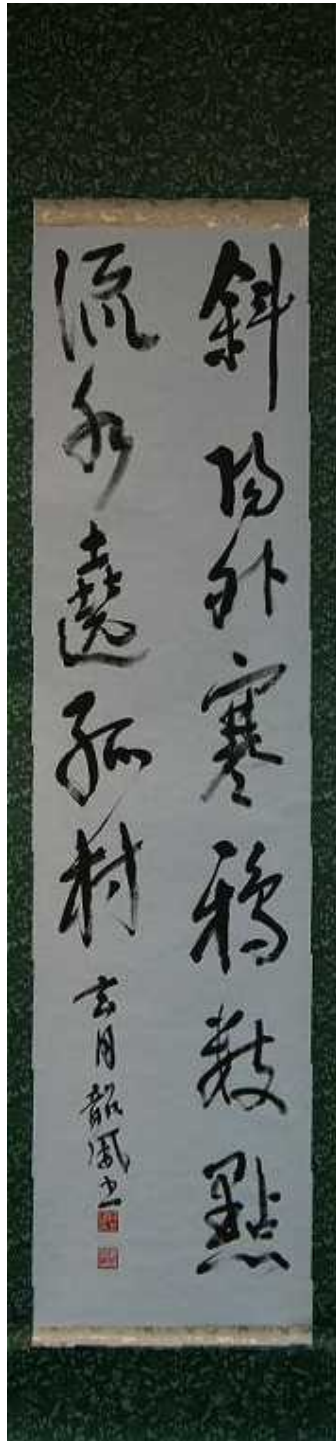 斜陽外寒鴉數點
流水遶孤村
玄月韶風書